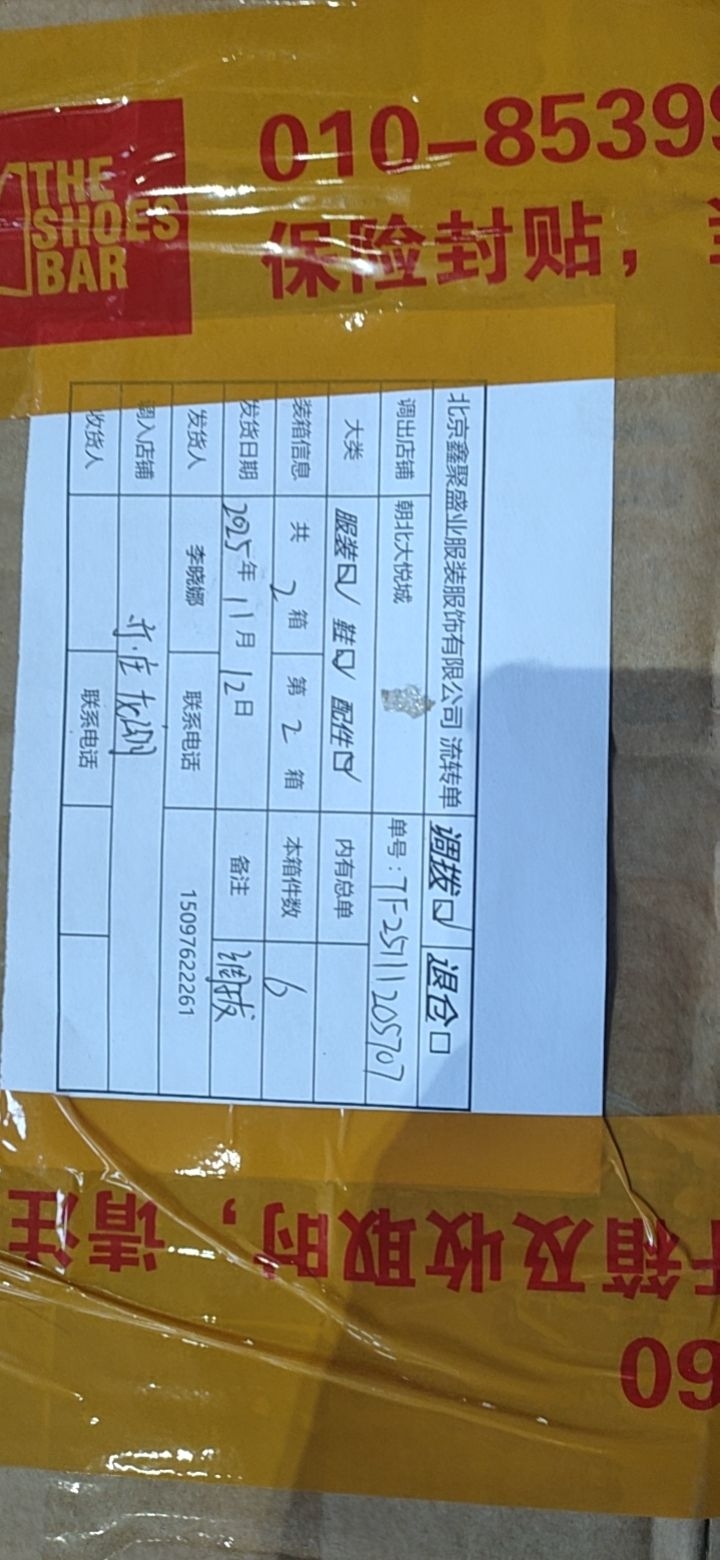 THE
SHOES
BAR
010-8539
保险封贴，
北京鑫聚盛业服装服饰有限公司 流转单 调拨☑ 退仓□
调出店铺 朝北大悦城 单号：TF-251111205707
大类 服装☑ 鞋☑ 配件☑ 内有总单
装箱信息 共 2 箱 第 2 箱 本箱件数 6
发货日期 2025年 11月 12日 备注 调拨
发货人 李晓娜 联系电话 15097622261
调入店铺
收货人 联系电话
箱及收取时，请注
60